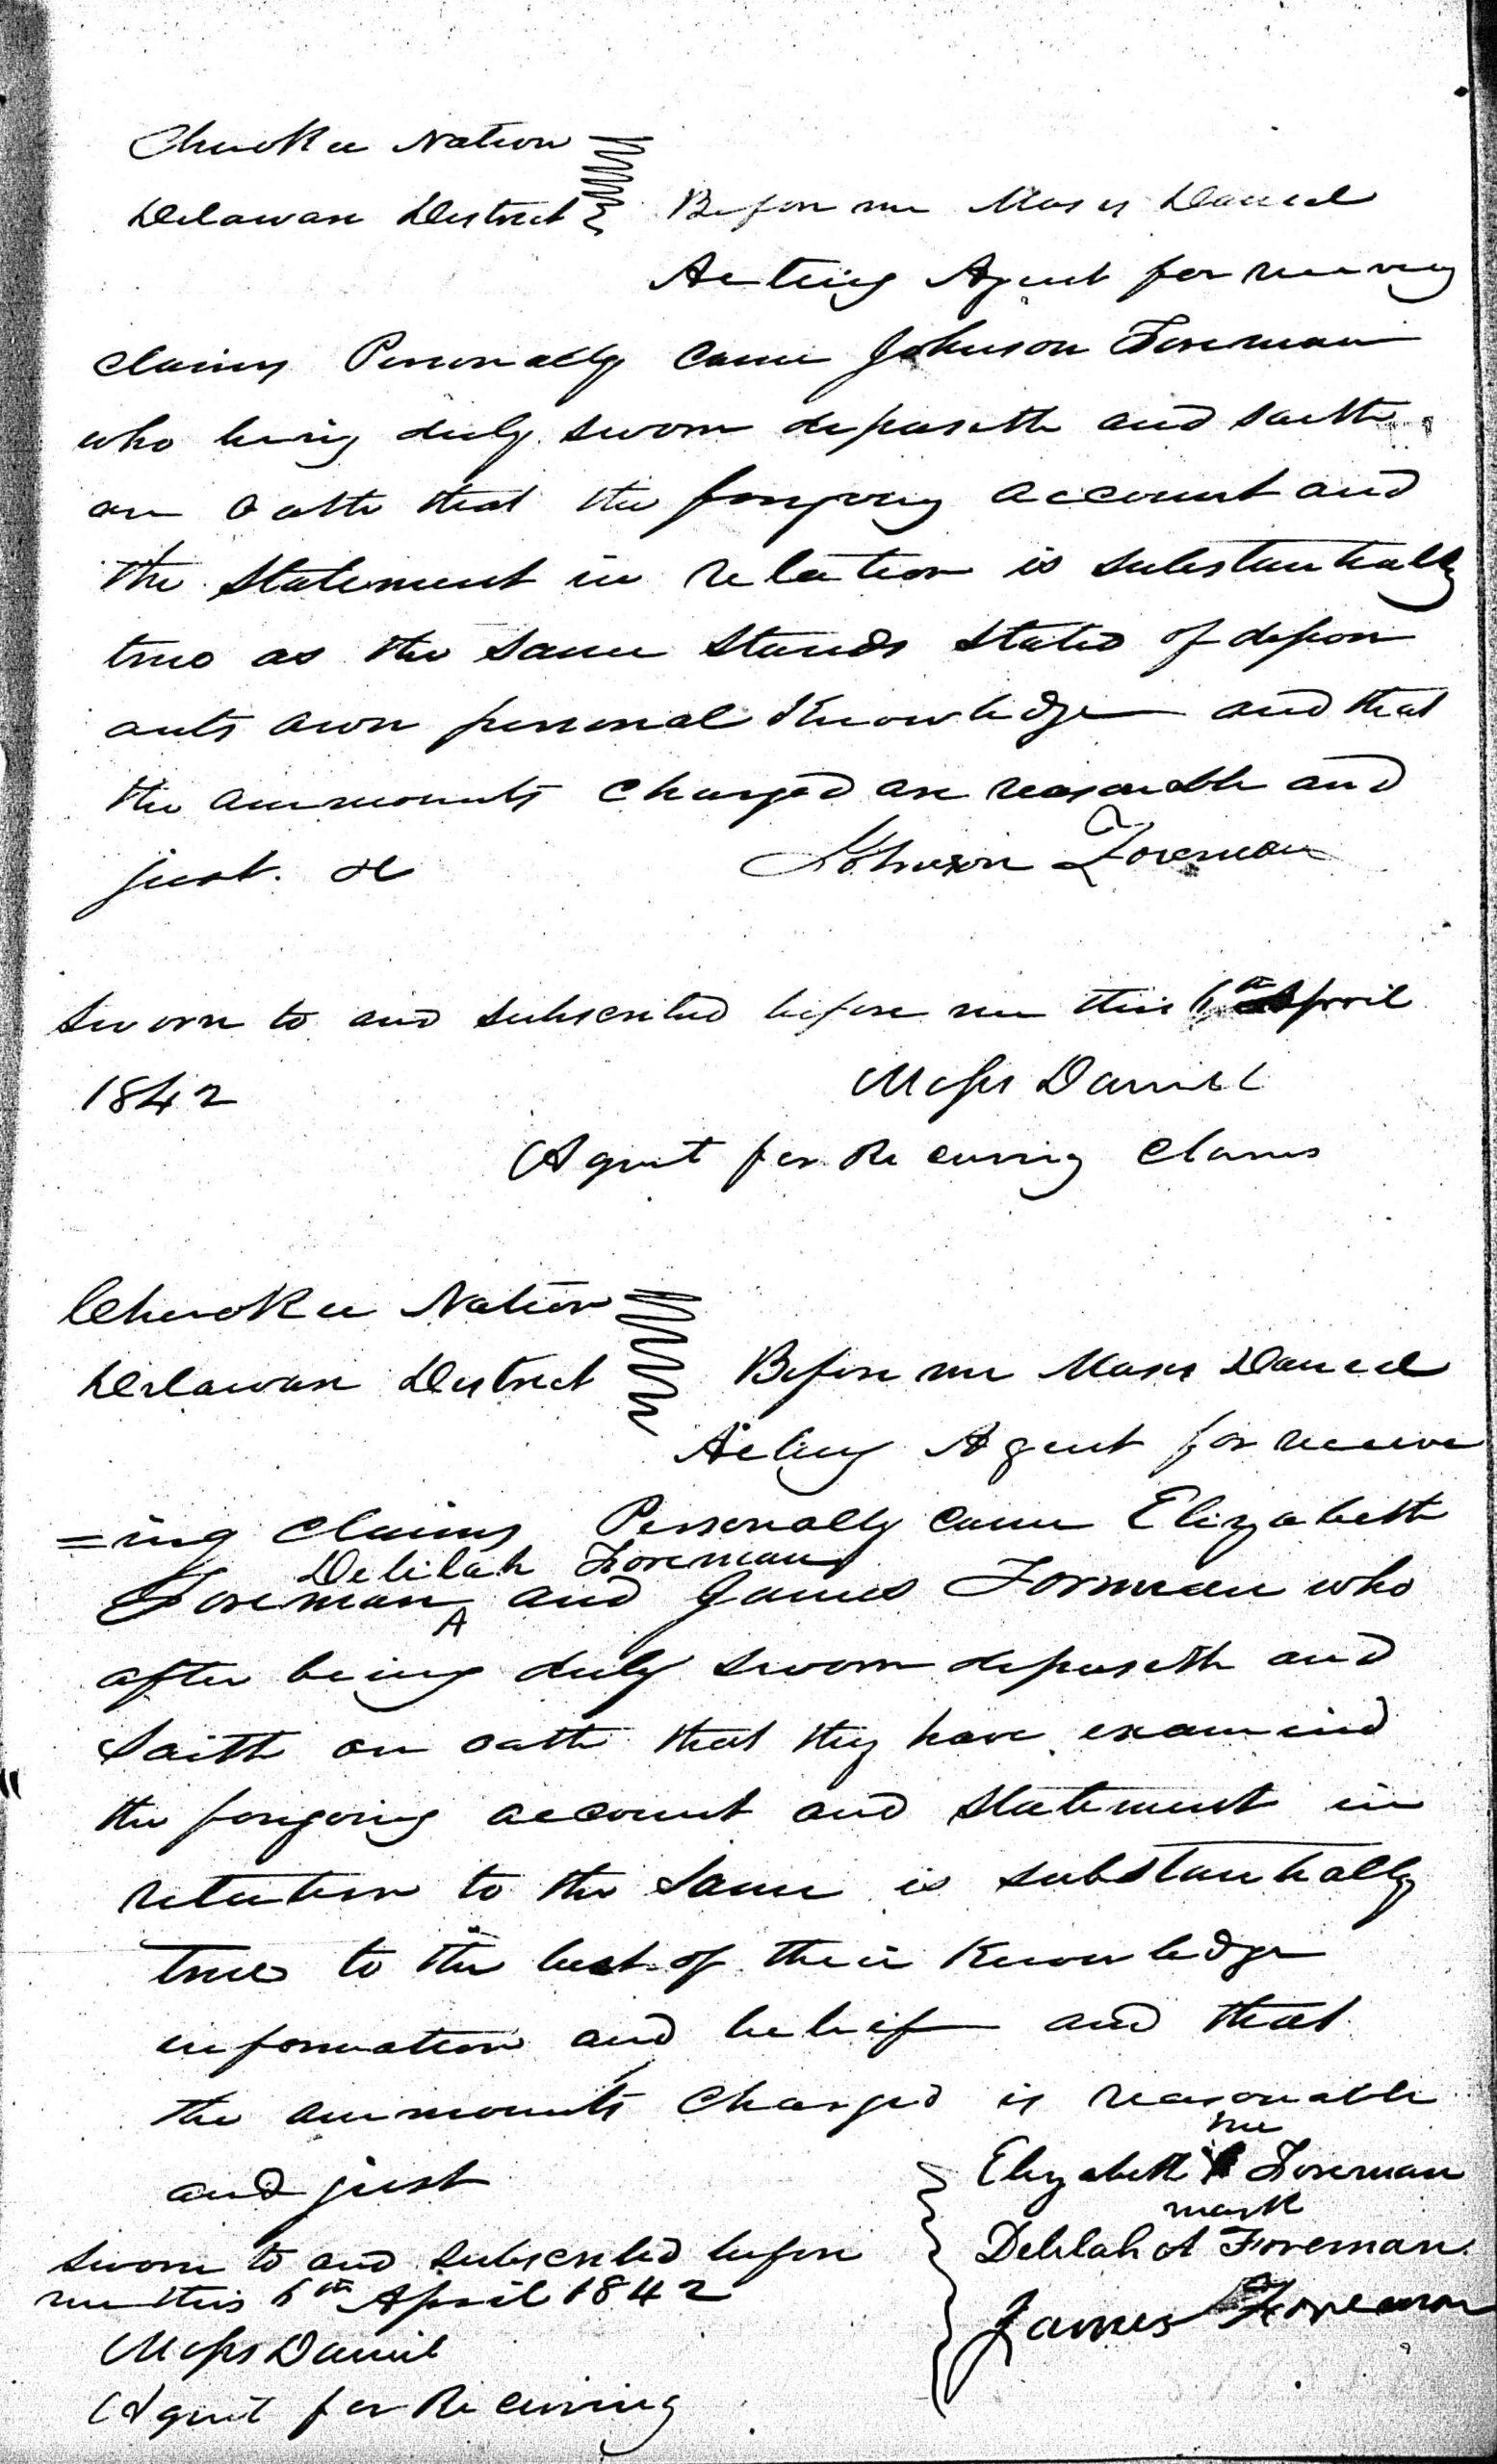 Cherokee Nation
Delaware District Before me Moses Daniel
Acting Agent for receiving
claims Personally came Johnson Foreman
who being duly sworn deposeth and saith
on oath that the forgoing account and
the Statement in relation is substantially
true as the same stands stated of depon
ants own personal Knowledge and that
the ammounts charged are reasonable and
just. &c Johnson Foreman
Sworn to and subscribed before me this 6th April
1842 Moses Daniel
Agent for Receiving Claims
Cherokee Nation
Delaware District Before me Moses Daniel
Acting Agent for receive
=ing claims Personally came Elizabeth
Delilah Foreman
Foreman ^ and James Forman who
after being duly sworn deposeth and
Saith on oath that they have examined
the forgoing account and statement in
relation to the same is substantially
true to the best of their Knowledge
information and belief and that
the ammounts charged is reasonable
and just
her
Elizabeth X Foreman
mark
Sworn to and subscribed before Delilah A Foreman
me this 6th April 1842
James Foreman
Moses Daniel
Agent for Receiving